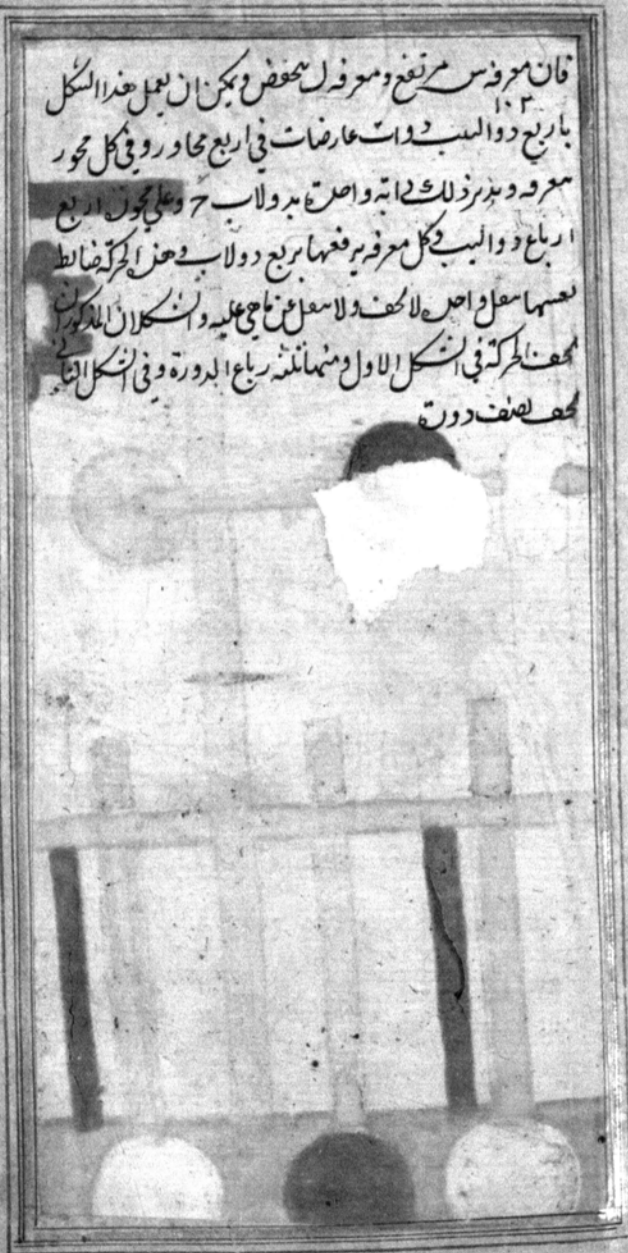 فان معرفه س مرتفع ومعرفه ل ينخفض ويمكن ان يعمل هذا الشكل
باربع دواليب ذوات عارضات في اربع محاور وفي كل محور
معرفه ويدير ذلك دابه واحدة بدولاب وعلي محوره اربع
ارباع دواليب وكل معرفه يرفعها بربع دولاب وهذه الحركة ضابط
نفسها واحد لا يخف ولا عن ماهي عليه والشكلان المذكوران
يخف الحركة في الشكل الاول ومنهما ثلثه رباع الدورة وفي الشكل الثاني
يخف نصف دورة